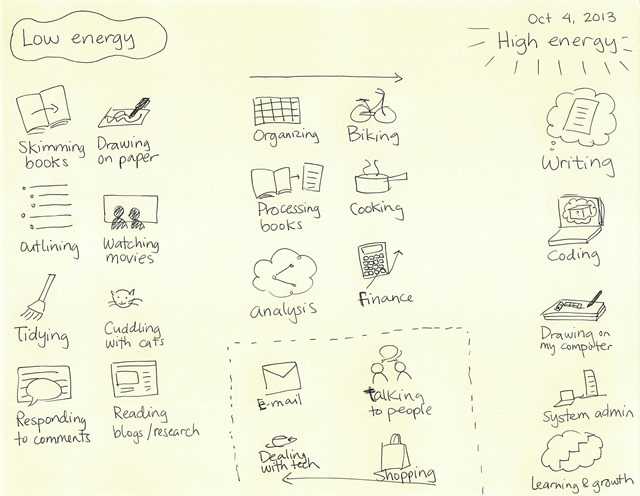 Oct 4, 2013
Low energy
High energy
Skimming
books
Drawing
on paper
Outlining
Watching
movies
Tidying
Cuddling
with cats
Responding
to comments
Reading
blogs/research
Organizing
Biking
Processing
books
Cooking
Analysis
Finance
E-mail
Talking
to people
Dealing
with tech
Shopping
Writing
Coding
Drawing on
my computer
System admin
Learning & growth